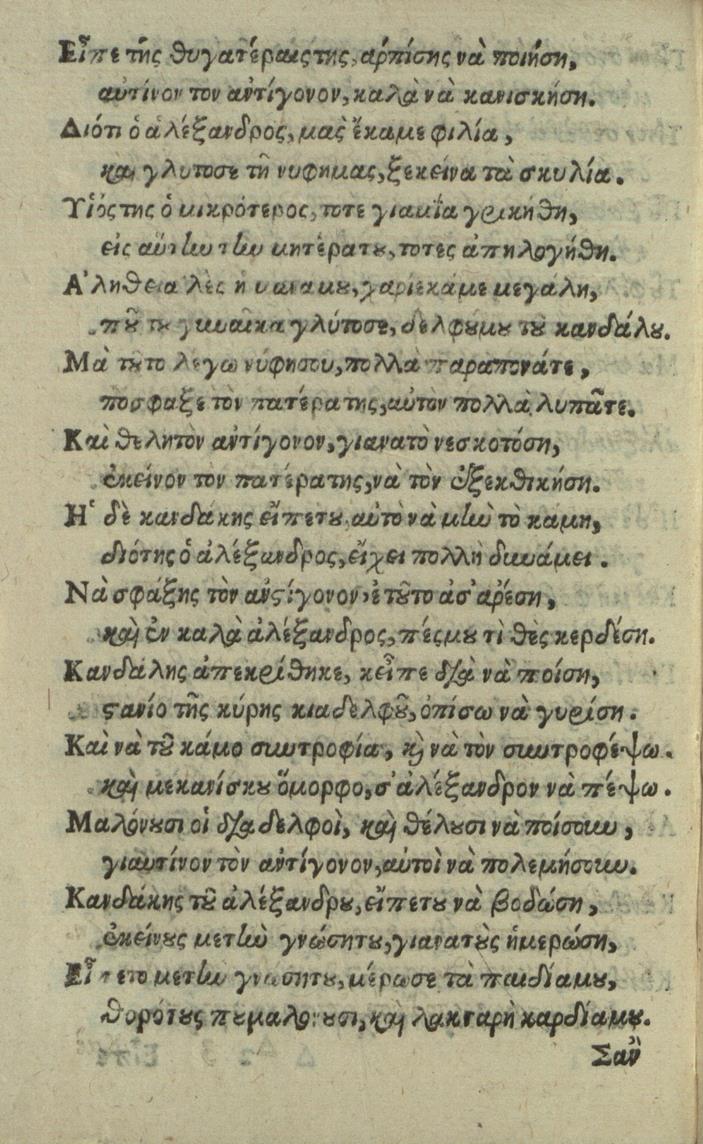 Εἶπε τῆς θυγατέραις της, ἀρπίσης νὰ ποιήση,
αὐτίνον τον ἀντίγονον, καλὰ νὰ κανισκήση.
Διότι ὁ ἀλέξανδρος, μας ἔκαμε φιλία,
καὶ γλυτοσε τὴ νυφημας, ξεκείνα τὰ σκυλία.
Υἱός της ὁ μικρότερος, τοτε γιαμία γρικήθη,
εἰς αὕτην την μητέρατου, τοτες ἀπηλογήθη.
Ἀληθεια λὲς ἡ μου, χαρίεκάμε μεγάλη,
ποῦ γυναῖκα γλύτοσε, δελφουμου τοῦ κανδάλου.
Μὰ τουτο λεγω νύφησου, πολλα παραπονάτε,
ποσφαξε τὸν πατέρα της, αὐτὸν πολλὰ λυπᾶτε.
Καὶ θελητὸν ἀντίγονον, γιανατὸ νεσκοτόση,
ἐκείνον τον πατέρατης, νὰ τὸν ἐξεκθικήση.
Ἡ δὲ κανδάκης εἴπετου, αὐτὸ νὰ μὴν τὸ κάμη,
διότης ὁ ἀλέξανδρος, εἴχει πολλὴ δυνάμει.
Νὰ σφάξης τὸν ἀντίγονον, ἐτοῦτο ἀσ' ἀρέση,
καὶ ἐν καλὰ ἀλέξανδρος, πέσμου τὶ θὲς κερδέση.
Κανδάλης ἀπεκρίθηκε, κεῖπε διὰ νὰ ποίση,
στανίο τῆς κύρης κιαδελφοῦ, ὀπίσω νὰ γυρίση.
Καὶ νὰ τοῦ κάμο συντροφία, καὶ νὰ τὸν συντροφέψω.
καὶ μεκανίσκι ὄμορφο, σ' ἀλέξανδρον νὰ πέψω.
Μαλόνουσι οἱ δυὸ δελφοὶ, καὶ θέλουσι νὰ ποίσουν,
γιαυτίνον τὸν ἀντίγονον, αὐτοὶ νὰ πολεμήσουν.
Κανδάκης τοῦ ἀλέξανδρου, εἴπετου νὰ βοδώση,
ἐκείνους μετὴν γνώσητου, γιανατοὺς ἡμερώση,
μετὴν γνώσητου, μέρωσε τὰ παιδίαμου,
θορότους πουμαλόνουσι, καὶ λακταρὴ καρδίαμου.
Σαν